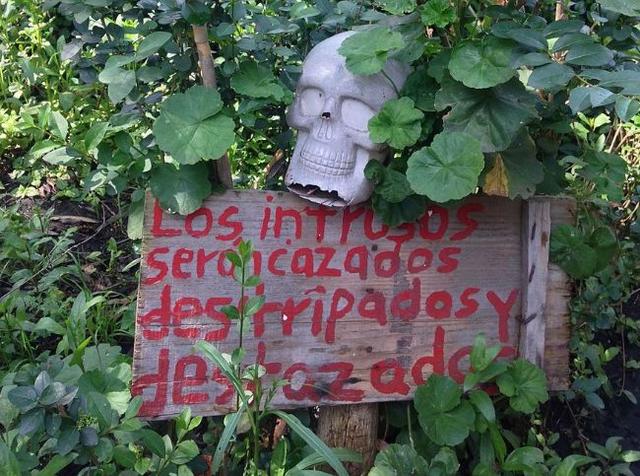 Los intrusos
serán cazados
destrripados y
destrozados